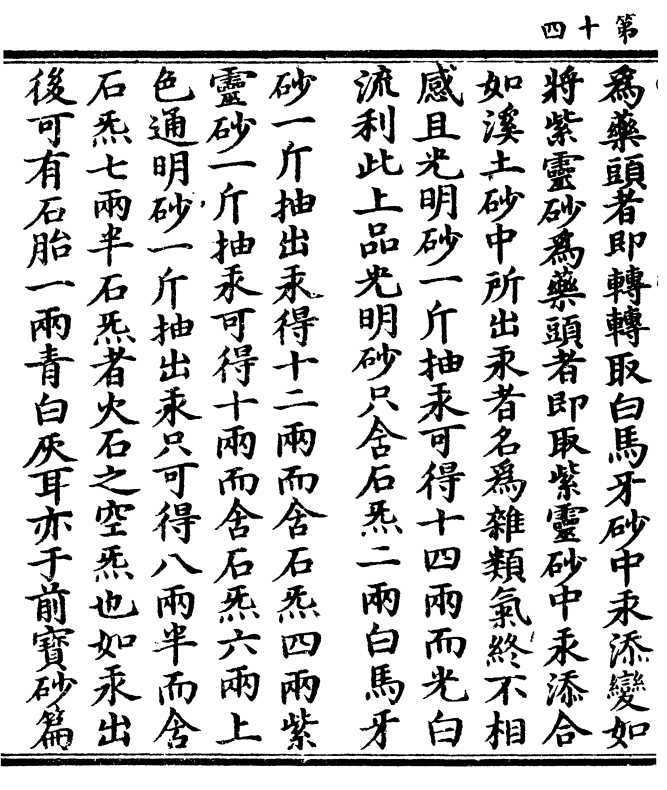 第十四
爲藥頭者即轉轉取白馬牙砂中汞添變如
將紫靈砂爲藥頭者即取紫靈砂中汞添合
如溪土砂中所出汞者名爲雜類氣終不相
感且光明砂一斤抽汞可得十四兩而光白
流利此上品光明砂只含石炁二兩白馬牙
砂一斤抽出汞得十二兩而含石炁四兩紫
靈砂一斤抽汞可得十兩而含石炁六兩上
色通明砂一斤抽出汞只可得八兩半而含
石炁七兩半石炁者火石之空炁也如汞出
後可有石胎一兩青白灰耳亦于前寶砂篇